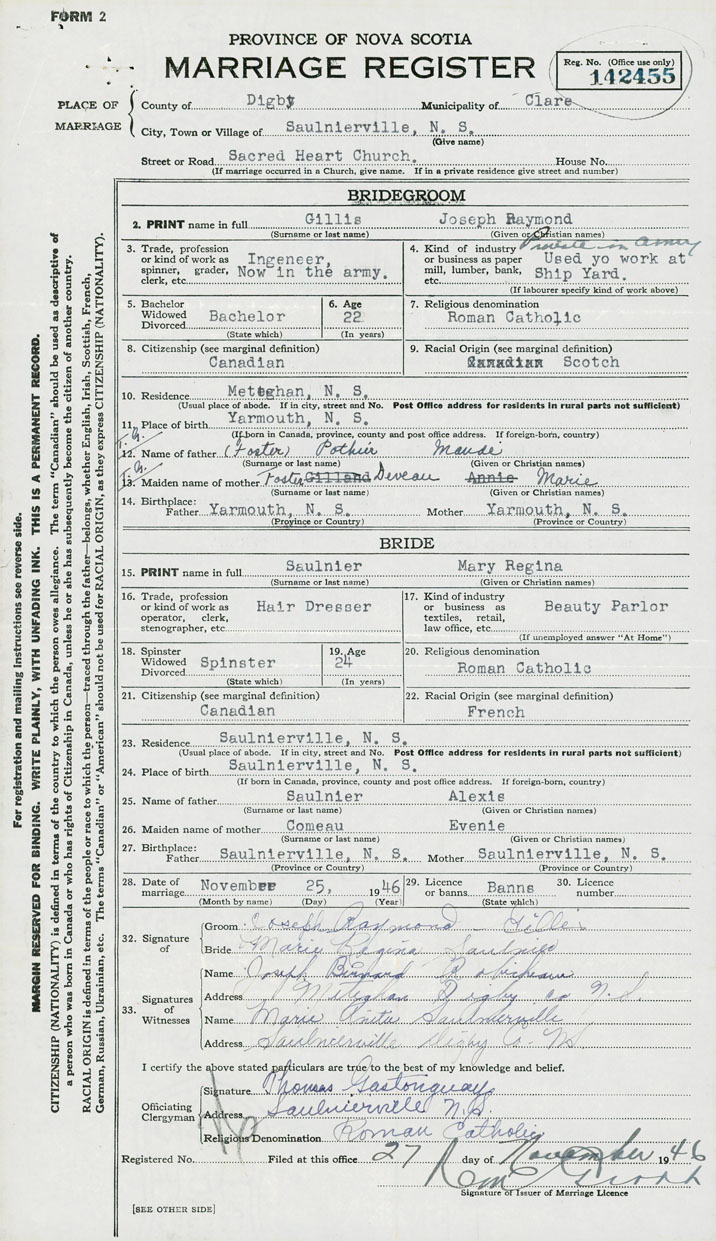 FORM 2
PROVINCE OF NOVA SCOTIA
MARRIAGE REGISTER
Reg. No. (Office use only)
142455
PLACE OF MARRIAGE
County of Digby Municipality of Clare
City, Town or Village of Saulnierville, N. S.
(Give name)
Street or Road Sacred Heart Church. House No.
(If marriage occurred in a Church, give name. If in a private residence give street and number)
BRIDEGROOM
2. PRINT name in full Gillis Joseph Raymond
(Surname or last name) (Given or Christian names)
3. Trade, profession or kind of work as spinner, grader, clerk, etc. Ingeneer, Now in the army.
4. Kind of industry or business as paper mill, lumber, bank, etc. Used yo work at Ship Yard.
Private in army
(If labourer specify kind of work above)
5. Bachelor Widowed Divorced Bachelor
(State which)
6. Age 22
(In years)
7. Religious denomination
Roman Catholic
8. Citizenship (see marginal definition)
Canadian
9. Racial Origin (see marginal definition)
Canadian Scotch
10. Residence Meteghan, N. S.
(Usual place of abode. If in city, street and No. Post Office address for residents in rural parts not sufficient)
11. Place of birth Yarmouth, N. S.
(If born in Canada, province, county and post office address. If foreign-born, country)
T. G.
12. Name of father (Foster) Pothier Mande
(Surname or last name) (Given or Christian names)
T. G.
13. Maiden name of mother Foster Gilland Deveau Annie Marie
(Surname or last name) (Given or Christian names)
14. Birthplace:
Father Yarmouth, N. S. Mother Yarmouth, N. S.
(Province or Country) (Province or Country)
BRIDE
15. PRINT name in full Saulnier Mary Regina
(Surname or last name) (Given or Christian names)
16. Trade, profession or kind of work as operator, clerk, stenographer, etc Hair Dresser
17. Kind of industry or business as textiles, retail, law office, etc. Beauty Parlor
(If unemployed answer "At Home")
18. Spinster Widowed Divorced Spinster
(State which)
19. Age 24
(In years)
20. Religious denomination
Roman Catholic
21. Citizenship (see marginal definition)
Canadian
22. Racial Origin (see marginal definition)
French
23. Residence Saulnierville, N. S.
(Usual place of abode. If in city, street and No. Post Office address for residents in rural parts not sufficient)
24. Place of birth Saulnierville, N. S.
(If born in Canada, province, county and post office address. If foreign-born, country)
25. Name of father Saulnier Alexis
(Surname or last name) (Given or Christian names)
26. Maiden name of mother Comeau Evenie
(Surname or last name) (Given or Christian names)
27. Birthplace:
Father Saulnierville, N. S. Mother Saulnierville, N. S.
(Province or Country) (Province or Country)
28. Date of marriage November 25, 1946
(Month by name) (Day) (Year)
29. Licence or banns Banns
(State which)
30. Licence number
32. Signature of
Groom Joseph Raymond Gillis
Bride Marie Regina Saulnier
33. Signatures of Witnesses
Name Joseph Bernard Robicheau
Address Meteghan Digby co N. S.
Name Marie Anita Saulnierville
Address Saulnierville Digby Co. NS
I certify the above stated particulars are true to the best of my knowledge and belief.
Officiating Clergyman
Signature Thomas Gastonguay
Address Saulnierville N.S.
Religious Denomination Roman Catholic
Registered No. Filed at this office 27 day of November 1946
Signature of Issuer of Marriage Licence
[SEE OTHER SIDE]
For registration and mailing instructions see reverse side.
MARGIN RESERVED FOR BINDING. WRITE PLAINLY, WITH UNFADING INK. THIS IS A PERMANENT RECORD.
CITIZENSHIP (NATIONALITY) is defined in terms of the country to which the person owes allegiance. The term "Canadian" should be used as descriptive of
a person who was born in Canada or who has rights of Citizenship in Canada, unless he or she has subsequently become the citizen of another country.
RACIAL ORIGIN is defined in terms of the people or race to which the person—traced through the father—belongs, whether English, Irish, Scottish, French,
German, Russian, Ukrainian, etc. The terms "Canadian" or "American" should not be used for RACIAL ORIGIN, as they express CITIZENSHIP (NATIONALITY).